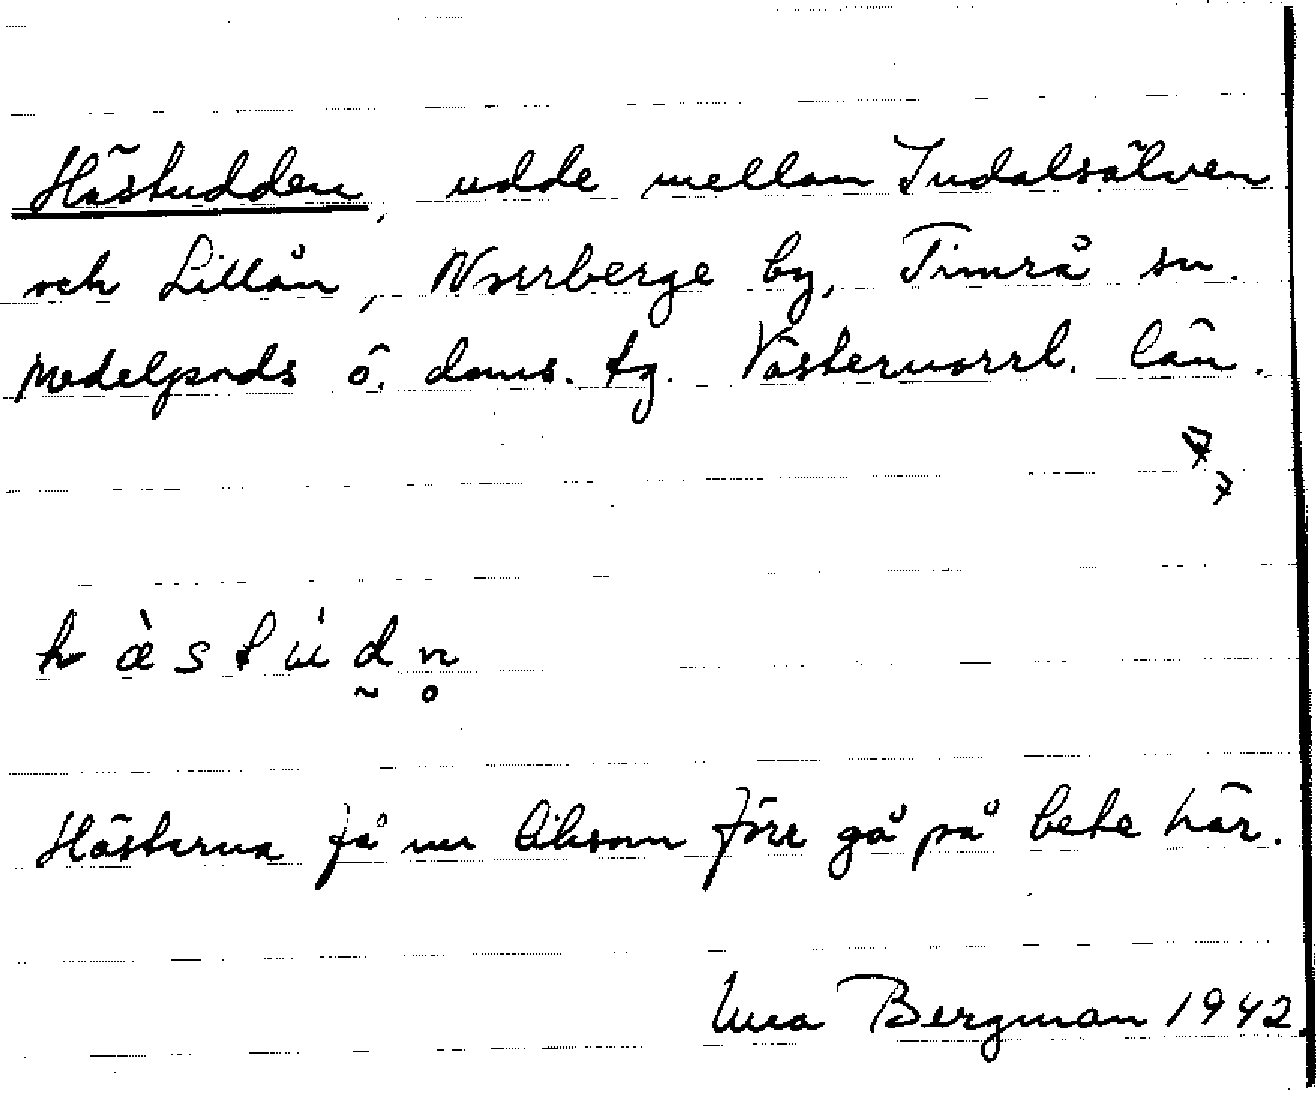 Hästudden, udde mellan Indalsälven
och Lillån, Norrberge by, Timrå sn.
Medelpads ö. doms. tg. Västernorrl. län.
h æ̀ s t ú d̰ n̥
Hästarna få nu liksom förr gå på bete här.
Bergman 1942.